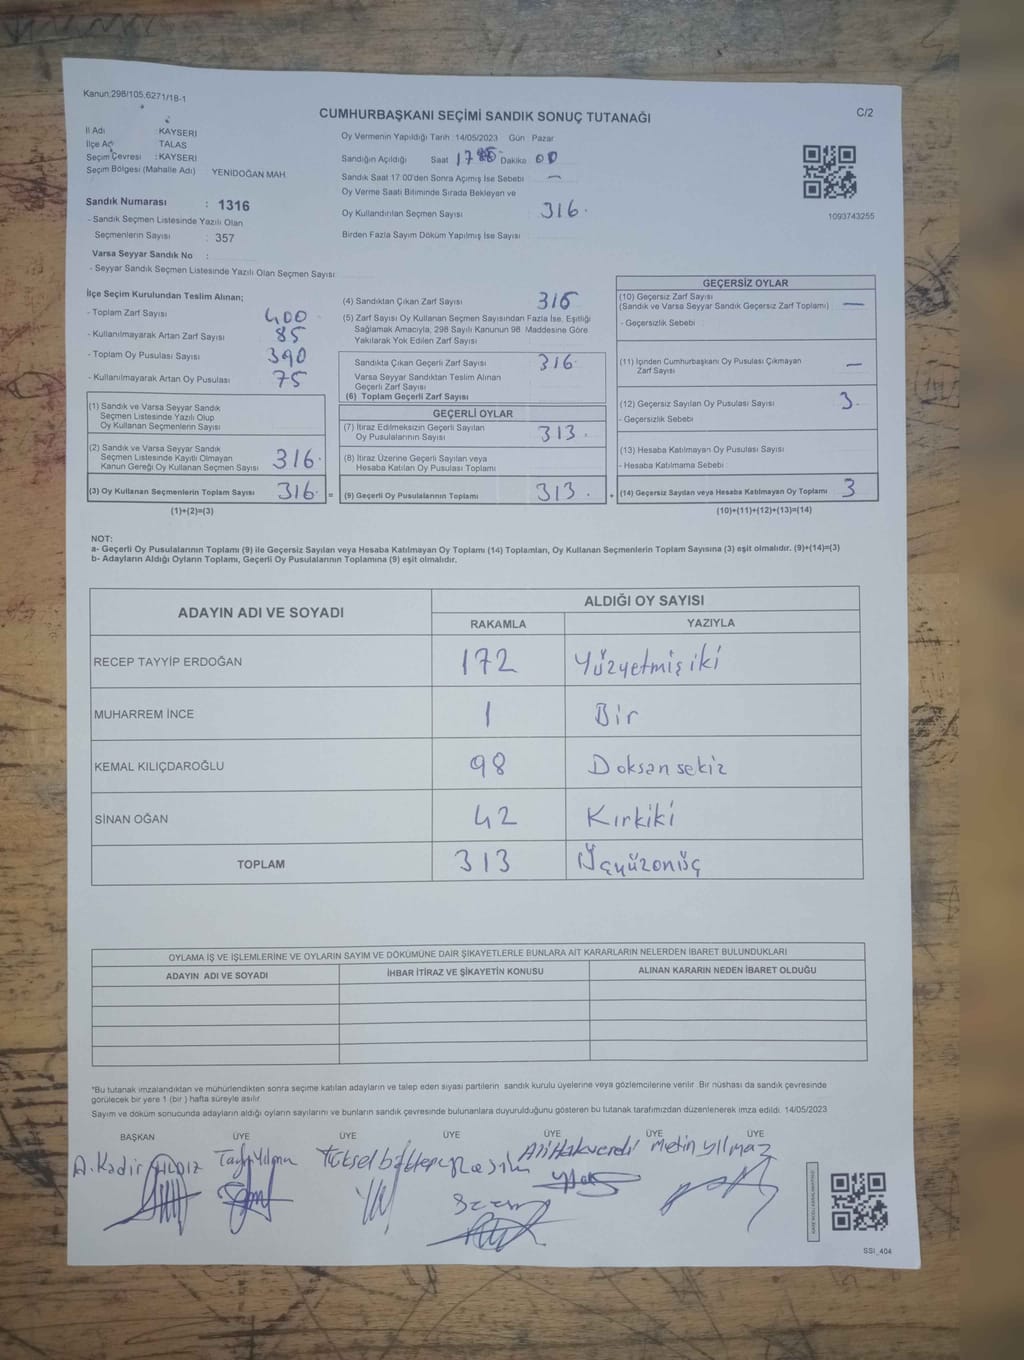 Kanun:298/105,6271/18-1
CUMHURBAŞKANI SEÇİMİ SANDIK SONUÇ TUTANAĞI
C/2
İl Adı :KAYSERİ
İlçe Adı TALAS
Seçim Çevresi :KAYSERİ
Seçim Bölgesi (Mahalle Adı) YENİDOĞAN MAH.
Sandık Numarası : 1316
- Sandık Seçmen Listesinde Yazılı Olan
Seçmenlerin Sayısı : 357
Varsa Seyyar Sandık No :
- Seyyar Sandık Seçmen Listesinde Yazılı Olan Seçmen Sayısı
Oy Vermenin Yapıldığı Tarih :14/05/2023 Gün : Pazar
Sandığın Açıldığı Saat Dakika 00
Sandık Saat 17:00'den Sonra Açımış İse Sebebi —
Oy Verme Saati Bitiminde Sırada Bekleyen ve
Oy Kullandırılan Seçmen Sayısı 316.
Birden Fazla Sayım Döküm Yapılmış İse Sayısı
1093743255
İlçe Seçim Kurulundan Teslim Alınan;
- Toplam Zarf Sayısı 400
- Kullanılmayarak Artan Zarf Sayısı 85
- Toplam Oy Pusulası Sayısı 390
- Kullanılmayarak Artan Oy Pusulası 75
(1) Sandık ve Varsa Seyyar Sandık
Seçmen Listesinde Yazılı Olup
Oy Kullanan Seçmenlerin Sayısı
(2) Sandık ve Varsa Seyyar Sandık
Seçmen Listesinde Kayıtlı Olmayan
Kanun Gereği Oy Kullanan Seçmen Sayısı 316.
(3) Oy Kullanan Seçmenlerin Toplam Sayısı 316. =
(1)+(2)=(3)
(4) Sandıktan Çıkan Zarf Sayısı 316
(5) Zarf Sayısı Oy Kullanan Seçmen Sayısından Fazla İse, Eşitliği
Sağlamak Amacıyla, 298 Sayılı Kanunun 98. Maddesine Göre
Yakılarak Yok Edilen Zarf Sayısı
Sandıkta Çıkan Geçerli Zarf Sayısı 316
Varsa Seyyar Sandıktan Teslim Alınan
Geçerli Zarf Sayısı
(6) Toplam Geçerli Zarf Sayısı
GEÇERLİ OYLAR
(7) İtiraz Edilmeksizin Geçerli Sayılan
Oy Pusulalarının Sayısı 313.
(8) İtiraz Üzerine Geçerli Sayılan veya
Hesaba Katılan Oy Pusulası Toplamı
(9) Geçerli Oy Pusulalarının Toplamı 313. +
GEÇERSİZ OYLAR
(10) Geçersiz Zarf Sayısı
(Sandık ve Varsa Seyyar Sandık Geçersiz Zarf Toplamı) —
- Geçersizlik Sebebi
(11) İçinden Cumhurbaşkanı Oy Pusulası Çıkmayan
Zarf Sayısı —
(12) Geçersiz Sayılan Oy Pusulası Sayısı 3.
- Geçersizlik Sebebi
(13) Hesaba Katılmayan Oy Pusulası Sayısı
- Hesaba Katılmama Sebebi
(14) Geçersiz Sayılan veya Hesaba Katılmayan Oy Toplamı 3
(10)+(11)+(12)+(13)=(14)
NOT:
a- Geçerli Oy Pusulalarının Toplamı (9) ile Geçersiz Sayılan veya Hesaba Katılmayan Oy Toplamı (14) Toplamları, Oy Kullanan Seçmenlerin Toplam Sayısına (3) eşit olmalıdır. (9)+(14)=(3)
b- Adayların Aldığı Oyların Toplamı, Geçerli Oy Pusulalarının Toplamına (9) eşit olmalıdır.
ADAYIN ADI VE SOYADI
ALDIĞI OY SAYISI
RAKAMLA YAZIYLA
RECEP TAYYİP ERDOĞAN 172 Yüzyetmişiki
MUHARREM İNCE 1 Bir
KEMAL KILIÇDAROĞLU 98 Doksan sekiz
SİNAN OĞAN 42 Kırkiki
TOPLAM 313 Üçyüzonüç
OYLAMA İŞ VE İŞLEMLERİNE VE OYLARIN SAYIM VE DÖKÜMÜNE DAİR ŞİKAYETLERLE BUNLARA AİT KARARLARIN NELERDEN İBARET BULUNDUKLARI
ADAYIN ADI VE SOYADI İHBAR İTİRAZ VE ŞİKAYETİN KONUSU ALINAN KARARIN NEDEN İBARET OLDUĞU
*Bu tutanak imzalandıktan ve mühürlendikten sonra seçime katılan adayların ve talep eden siyasi partilerin sandık kurulu üyelerine veya gözlemcilerine verilir. Bir nüshası da sandık çevresinde
görülecek bir yere 1 (bir) hafta süreyle asılır.
Sayım ve döküm sonucunda adayların aldığı oyların sayılarını ve bunların sandık çevresinde bulunanlara duyurulduğunu gösteren bu tutanak tarafımızdan düzenlenerek imza edildi. 14/05/2023
BAŞKAN ÜYE ÜYE ÜYE ÜYE ÜYE ÜYE
A.Kadir YILDIZ Ali Hakverdi Metin Yılmaz
SSİ_404